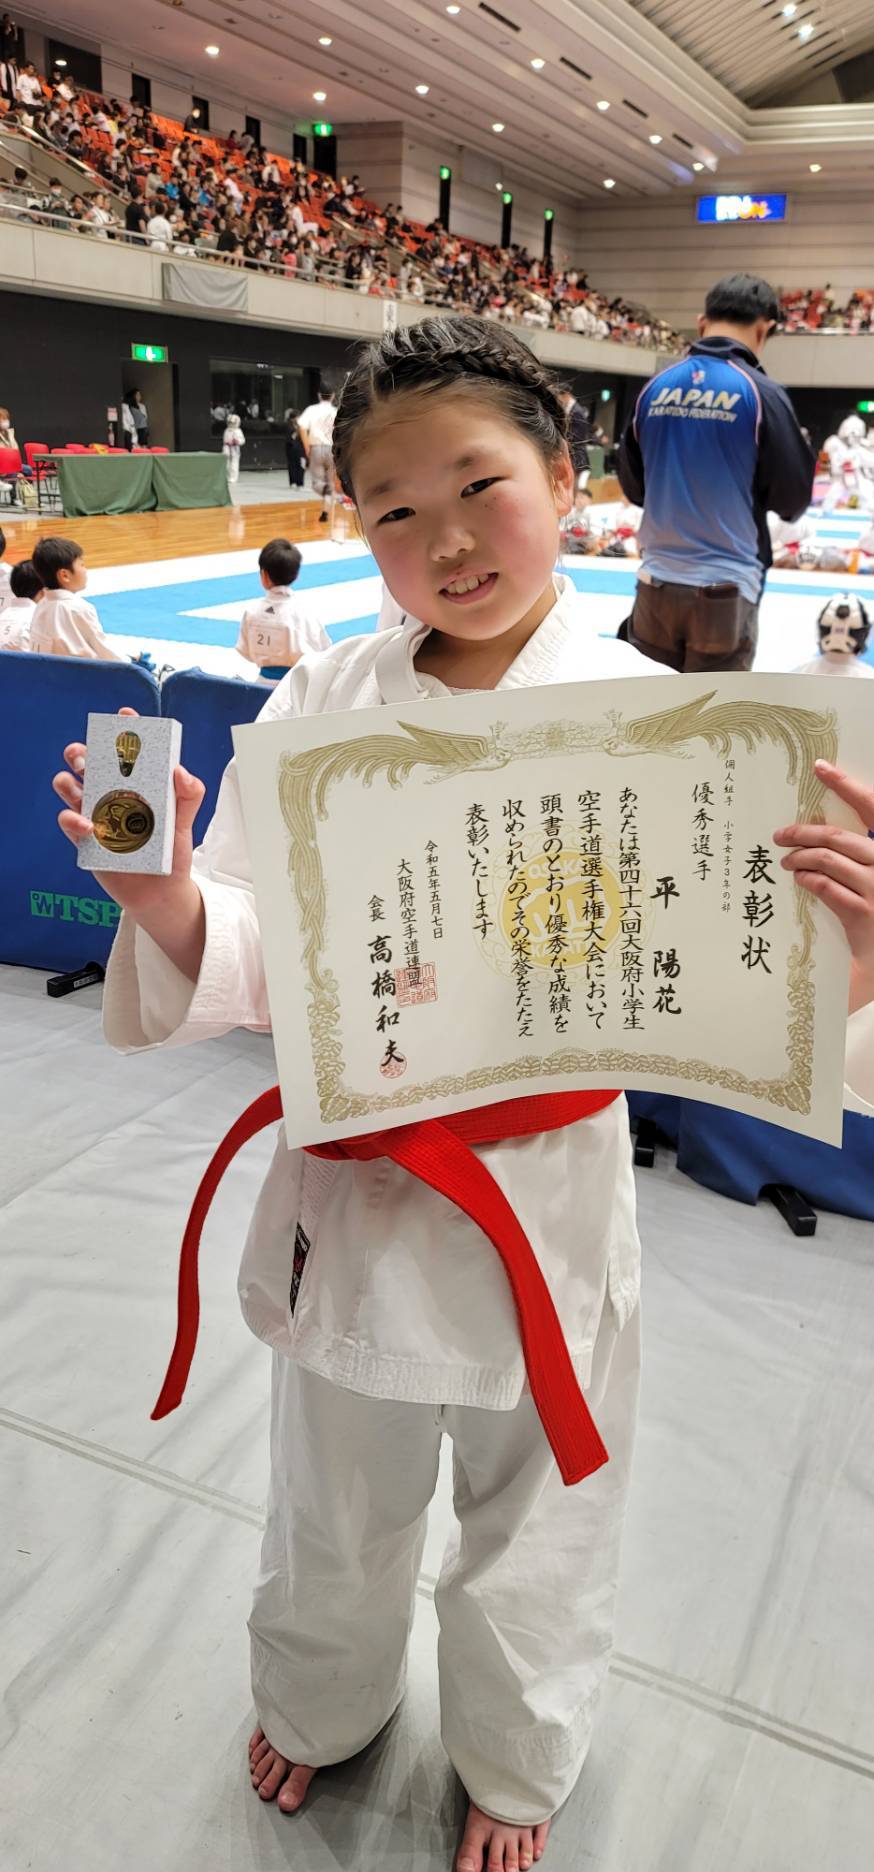 表彰状
個人組手 小学女子3年の部
優秀選手
平 陽花
あなたは第四十六回大阪府小学生
空手道選手権大会において
頭書のとおり優秀な成績を
収められたのでその栄誉をたたえ
表彰いたします
令和五年五月七日
大阪府空手道連盟
会長 高橋和夫
OSAKA
JAPAN
KARATEDO FEDERATION
21
TSP